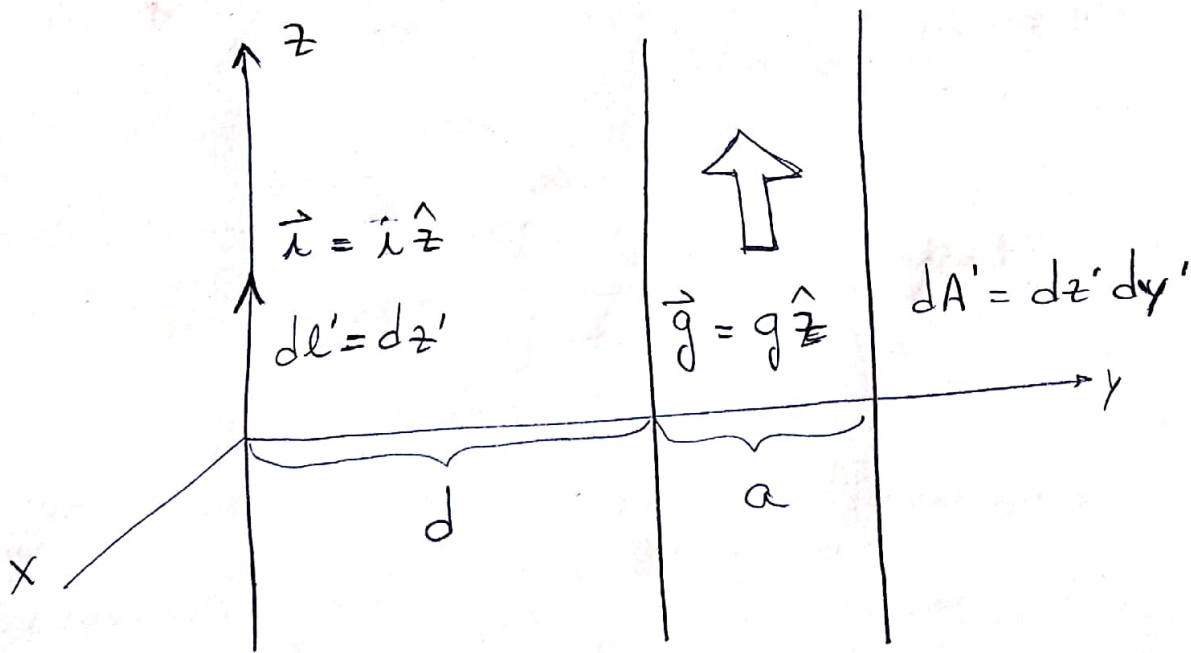 z
i⃗ = i ẑ
dl' = dz'
g⃗ = g ẑ
dA' = dz' dy'
y
d
a
x